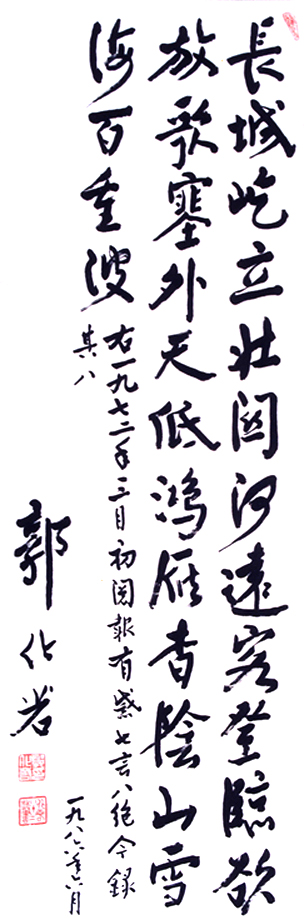 長城屹立壯関河遠客登臨欲
放歌塞外天低鴻雁杳陰山雪
海百重波
右一九七二年三月初閱報有感七言八絕今録
其八
郭化若
一九八六年六月